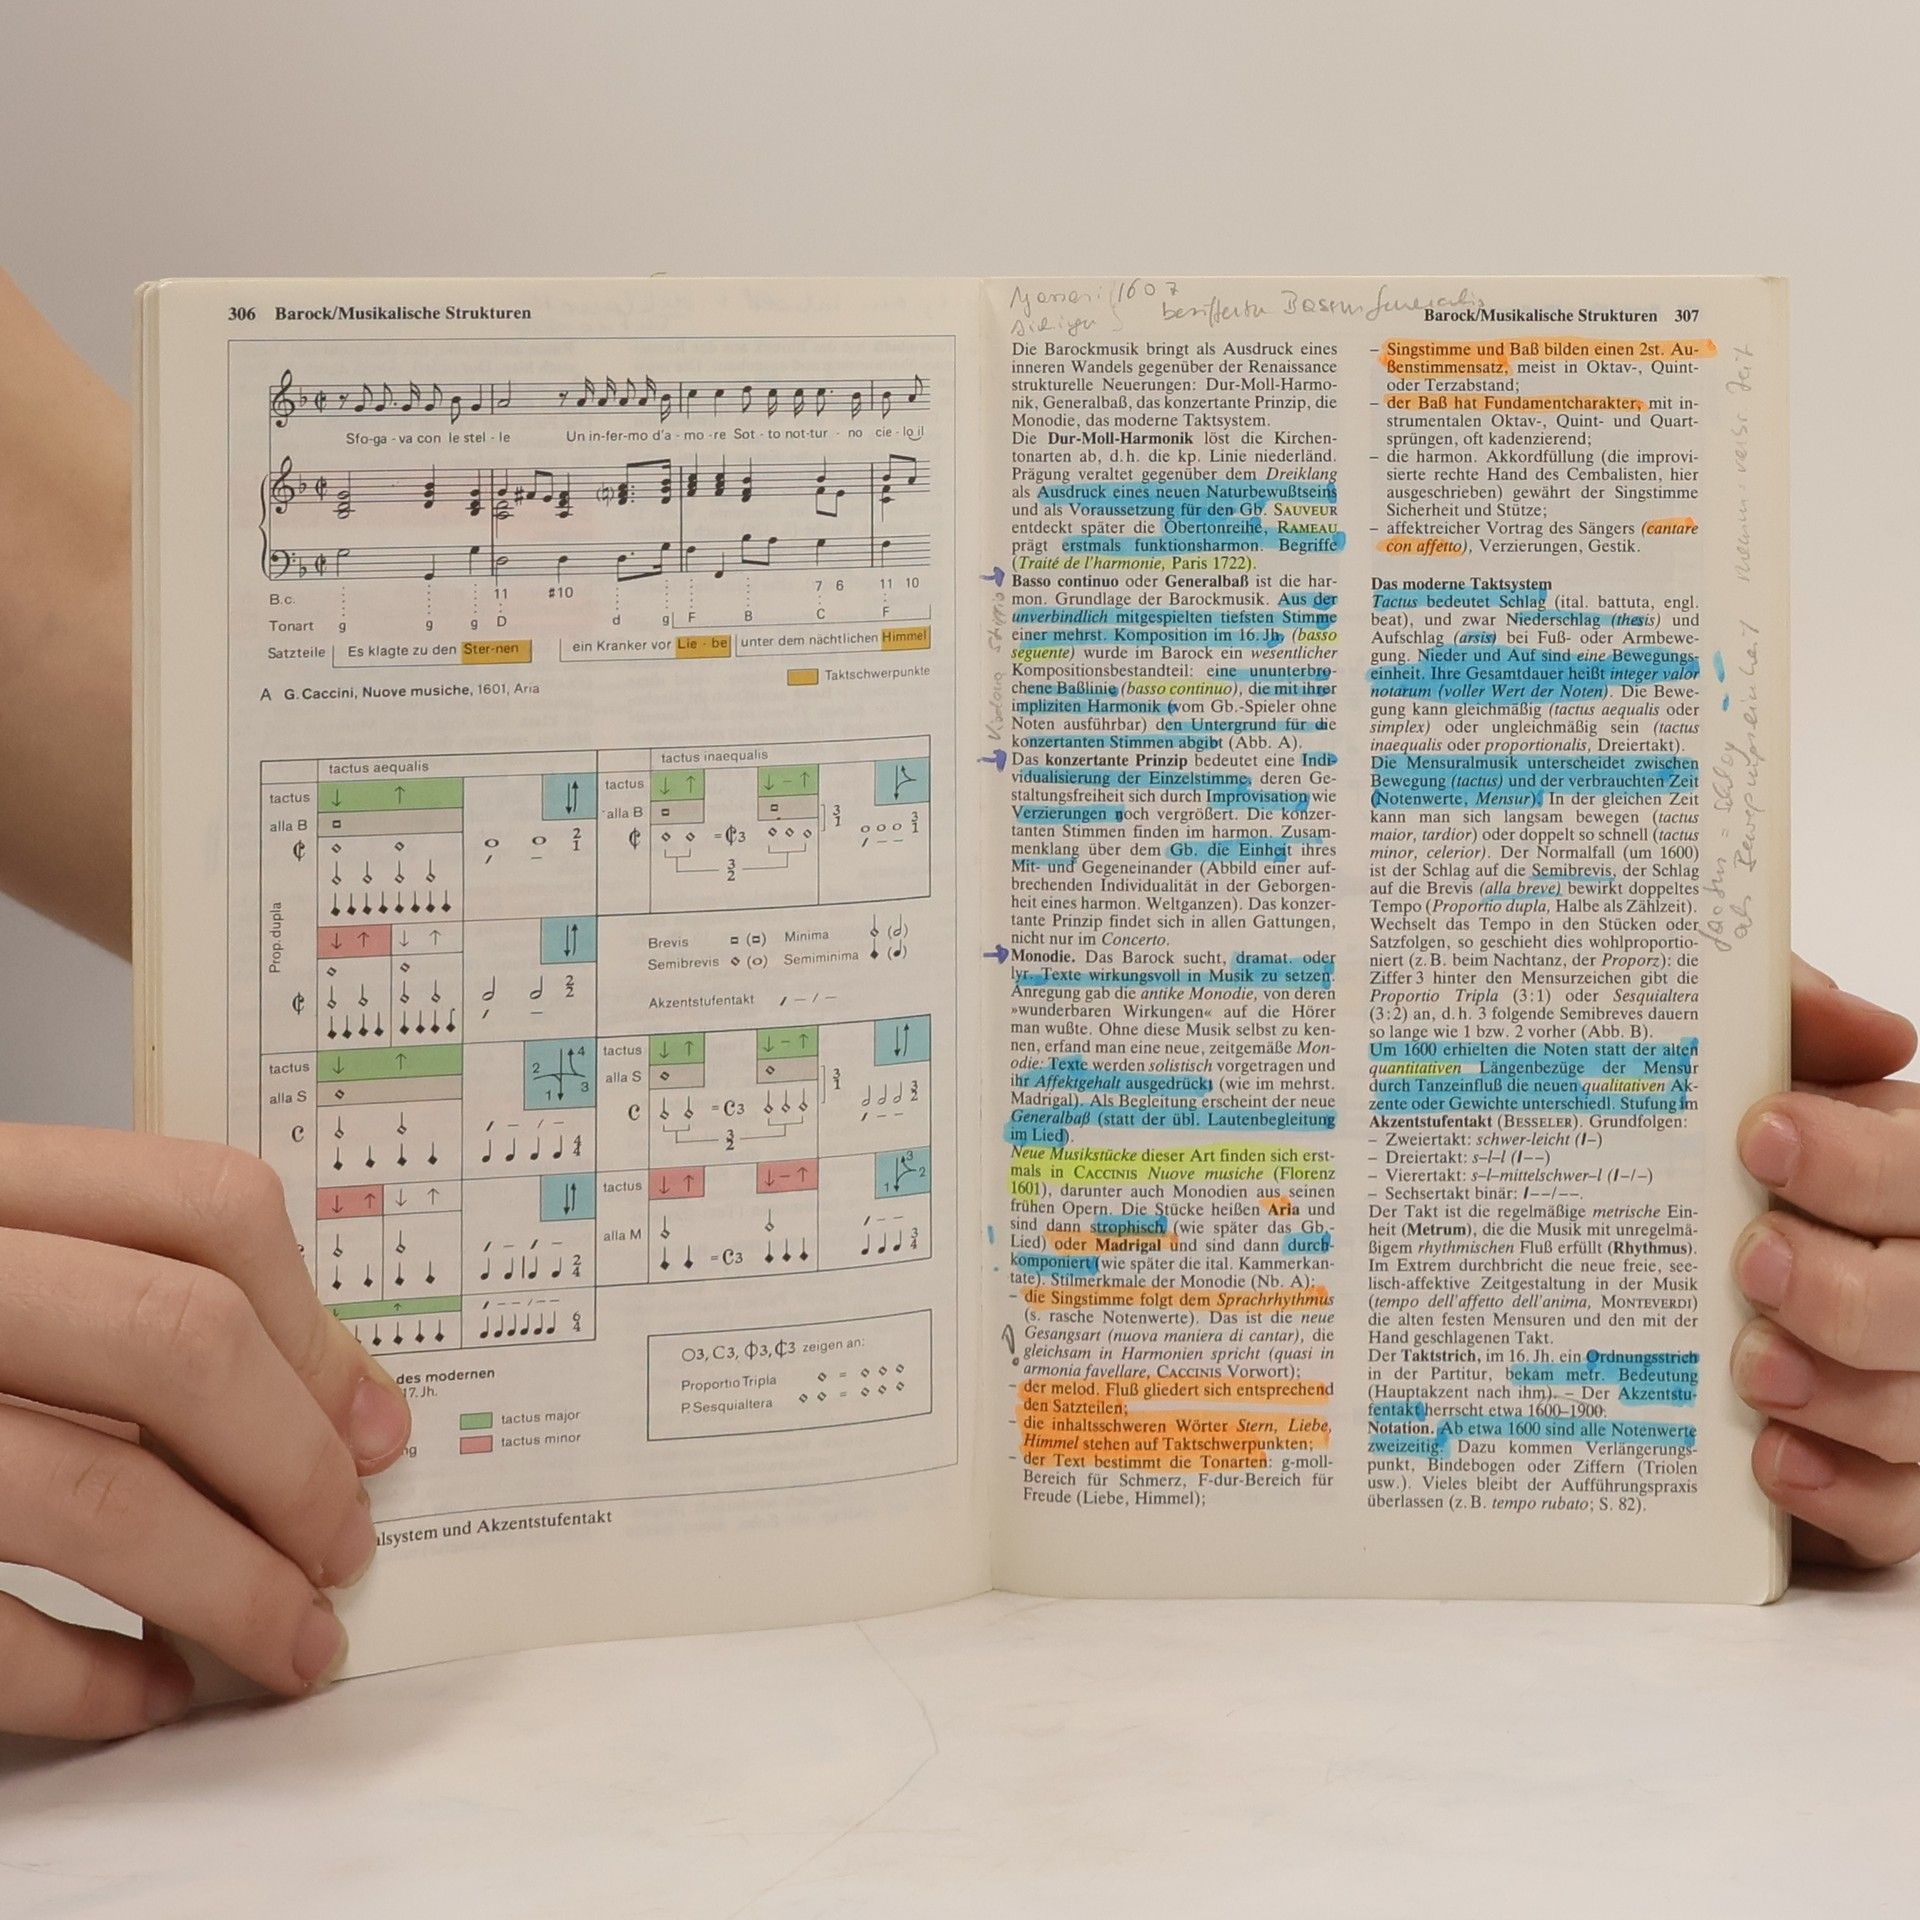 306 Barock/Musikalische Strukturen
Sfo-ga - va con le stel - le Un in-fer-mo d'a - mo - re Sot - to not-tur - no cie - lo il
11 #10 7 6 11 10
B.c.
Tonart g g g D d g F B C F
Satzteile Es klagte zu den Ster-nen ein Kranker vor Lie - be unter dem nächtlichen Himmel
Taktschwerpunkte
A G. Caccini, Nuove musiche, 1601, Aria
tactus aequalis
tactus inaequalis
tactus
alla B
Prop. dupla
2
1
tactus
alla B
3
1
= ₵3
3
2
3
1
2
2
Brevis Minima
Semibrevis Semiminima
Akzentstufentakt
tactus
alla S
C
2 4
1 3
4
4
tactus
alla S
C
= C3
3
1
3
2
3
2
2
4
tactus
alla M
= C3
3
2
1
3
4
6
4
des modernen
17. Jh.
tactus major
tactus minor
ng
O3, C3, Φ3, ₵3 zeigen an:
Proportio Tripla
P. Sesquialtera
alsystem und Akzentstufentakt
1607
Barock/Musikalische Strukturen 307
Die Barockmusik bringt als Ausdruck eines
inneren Wandels gegenüber der Renaissance
strukturelle Neuerungen: Dur-Moll-Harmo-
nik, Generalbaß, das konzertante Prinzip, die
Monodie, das moderne Taktsystem.
Die Dur-Moll-Harmonik löst die Kirchen-
tonarten ab, d. h. die kp. Linie niederländ.
Prägung veraltet gegenüber dem Dreiklang
als Ausdruck eines neuen Naturbewußtseins
und als Voraussetzung für den Gb. SAUVEUR
entdeckt später die Obertonreihe, RAMEAU
prägt erstmals funktionsharmon. Begriffe
(Traité de l'harmonie, Paris 1722).
Basso continuo oder Generalbaß ist die har-
mon. Grundlage der Barockmusik. Aus der
unverbindlich mitgespielten tiefsten Stimme
einer mehrst. Komposition im 16. Jh. (basso
seguente) wurde im Barock ein wesentlicher
Kompositionsbestandteil: eine ununterbro-
chene Baßlinie (basso continuo), die mit ihrer
impliziten Harmonik (vom Gb.-Spieler ohne
Noten ausführbar) den Untergrund für die
konzertanten Stimmen abgibt (Abb. A).
Das konzertante Prinzip bedeutet eine Indi-
vidualisierung der Einzelstimme, deren Ge-
staltungsfreiheit sich durch Improvisation wie
Verzierungen noch vergrößert. Die konzer-
tanten Stimmen finden im harmon. Zusam-
menklang über dem Gb. die Einheit ihres
Mit- und Gegeneinander (Abbild einer auf-
brechenden Individualität in der Geborgen-
heit eines harmon. Weltganzen). Das konzer-
tante Prinzip findet sich in allen Gattungen,
nicht nur im Concerto.
Monodie. Das Barock sucht, dramat. oder
lyr. Texte wirkungsvoll in Musik zu setzen.
Anregung gab die antike Monodie, von deren
»wunderbaren Wirkungen« auf die Hörer
man wußte. Ohne diese Musik selbst zu ken-
nen, erfand man eine neue, zeitgemäße Mon-
odie: Texte werden solistisch vorgetragen und
ihr Affektgehalt ausgedrückt (wie im mehrst.
Madrigal). Als Begleitung erscheint der neue
Generalbaß (statt der übl. Lautenbegleitung
im Lied).
Neue Musikstücke dieser Art finden sich erst-
mals in CACCINIS Nuove musiche (Florenz
1601), darunter auch Monodien aus seinen
frühen Opern. Die Stücke heißen Aria und
sind dann strophisch (wie später das Gb.-
Lied) oder Madrigal und sind dann durch-
komponiert (wie später die ital. Kammerkan-
tate). Stilmerkmale der Monodie (Nb. A):
– die Singstimme folgt dem Sprachrhythmus
(s. rasche Notenwerte). Das ist die neue
Gesangsart (nuova maniera di cantar), die
gleichsam in Harmonien spricht (quasi in
armonia favellare, CACCINIS Vorwort);
– der melod. Fluß gliedert sich entsprechend
den Satzteilen;
– die inhaltsschweren Wörter Stern, Liebe,
Himmel stehen auf Taktschwerpunkten;
– der Text bestimmt die Tonarten: g-moll-
Bereich für Schmerz, F-dur-Bereich für
Freude (Liebe, Himmel);
– Singstimme und Baß bilden einen 2st. Au-
ßenstimmensatz, meist in Oktav-, Quint-
oder Terzabstand;
– der Baß hat Fundamentcharakter, mit in-
strumentalen Oktav-, Quint- und Quart-
sprüngen, oft kadenzierend;
– die harmon. Akkordfüllung (die improvi-
sierte rechte Hand des Cembalisten, hier
ausgeschrieben) gewährt der Singstimme
Sicherheit und Stütze;
– affektreicher Vortrag des Sängers (cantare
con affetto), Verzierungen, Gestik.
Das moderne Taktsystem
Tactus bedeutet Schlag (ital. battuta, engl.
beat), und zwar Niederschlag (thesis) und
Aufschlag (arsis) bei Fuß- oder Armbewe-
gung. Nieder und Auf sind eine Bewegungs-
einheit. Ihre Gesamtdauer heißt integer valor
notarum (voller Wert der Noten). Die Bewe-
gung kann gleichmäßig (tactus aequalis oder
simplex) oder ungleichmäßig sein (tactus
inaequalis oder proportionalis, Dreiertakt).
Die Mensuralmusik unterscheidet zwischen
Bewegung (tactus) und der verbrauchten Zeit
(Notenwerte, Mensur). In der gleichen Zeit
kann man sich langsam bewegen (tactus
maior, tardior) oder doppelt so schnell (tactus
minor, celerior). Der Normalfall (um 1600)
ist der Schlag auf die Semibrevis, der Schlag
auf die Brevis (alla breve) bewirkt doppeltes
Tempo (Proportio dupla, Halbe als Zählzeit).
Wechselt das Tempo in den Stücken oder
Satzfolgen, so geschieht dies wohlproportio-
niert (z. B. beim Nachtanz, der Proporz): die
Ziffer 3 hinter den Mensurzeichen gibt die
Proportio Tripla (3:1) oder Sesquialtera
(3:2) an, d. h. 3 folgende Semibreves dauern
so lange wie 1 bzw. 2 vorher (Abb. B).
Um 1600 erhielten die Noten statt der alten
quantitativen Längenbezüge der Mensur
durch Tanzeinfluß die neuen qualitativen Ak-
zente oder Gewichte unterschiedl. Stufung im
Akzentstufentakt (BESSELER). Grundfolgen:
– Zweiertakt: schwer-leicht (I–)
– Dreiertakt: s–l–l (I––)
– Vierertakt: s–l–mittelschwer–l (I–/–)
– Sechsertakt binär: I––/––.
Der Takt ist die regelmäßige metrische Ein-
heit (Metrum), die die Musik mit unregelmä-
ßigem rhythmischen Fluß erfüllt (Rhythmus).
Im Extrem durchbricht die neue freie, see-
lisch-affektive Zeitgestaltung in der Musik
(tempo dell'affetto dell'anima, MONTEVERDI)
die alten festen Mensuren und den mit der
Hand geschlagenen Takt.
Der Taktstrich, im 16. Jh. ein Ordnungsstrich
in der Partitur, bekam metr. Bedeutung
(Hauptakzent nach ihm). – Der Akzentstu-
fentakt herrscht etwa 1600–1900.
Notation. Ab etwa 1600 sind alle Notenwerte
zweizeitig. Dazu kommen Verlängerungs-
punkt, Bindebogen oder Ziffern (Triolen
usw.). Vieles bleibt der Aufführungspraxis
überlassen (z. B. tempo rubato; S. 82).